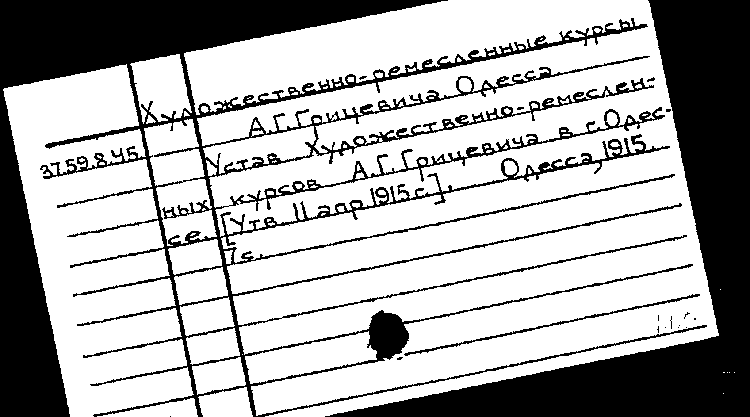 Художественно-ремесленные курсы
А.Г. Грицевича. Одесса
37.59.8.45 Устав Художественно-ремеслен-
ных курсов А.Г. Грицевича в г. Одес-
се. [Утв. 11 апр 1915 г.]. Одесса, 1915.
7с.